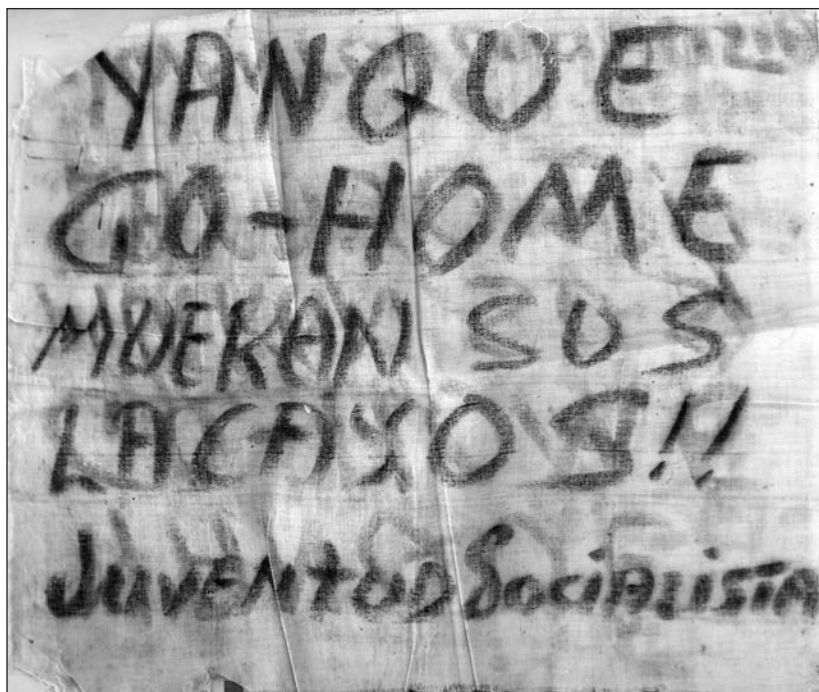 YANQUE
GO-HOME
MUERAN SUS
LACAYOS!!
Juventud Socialista